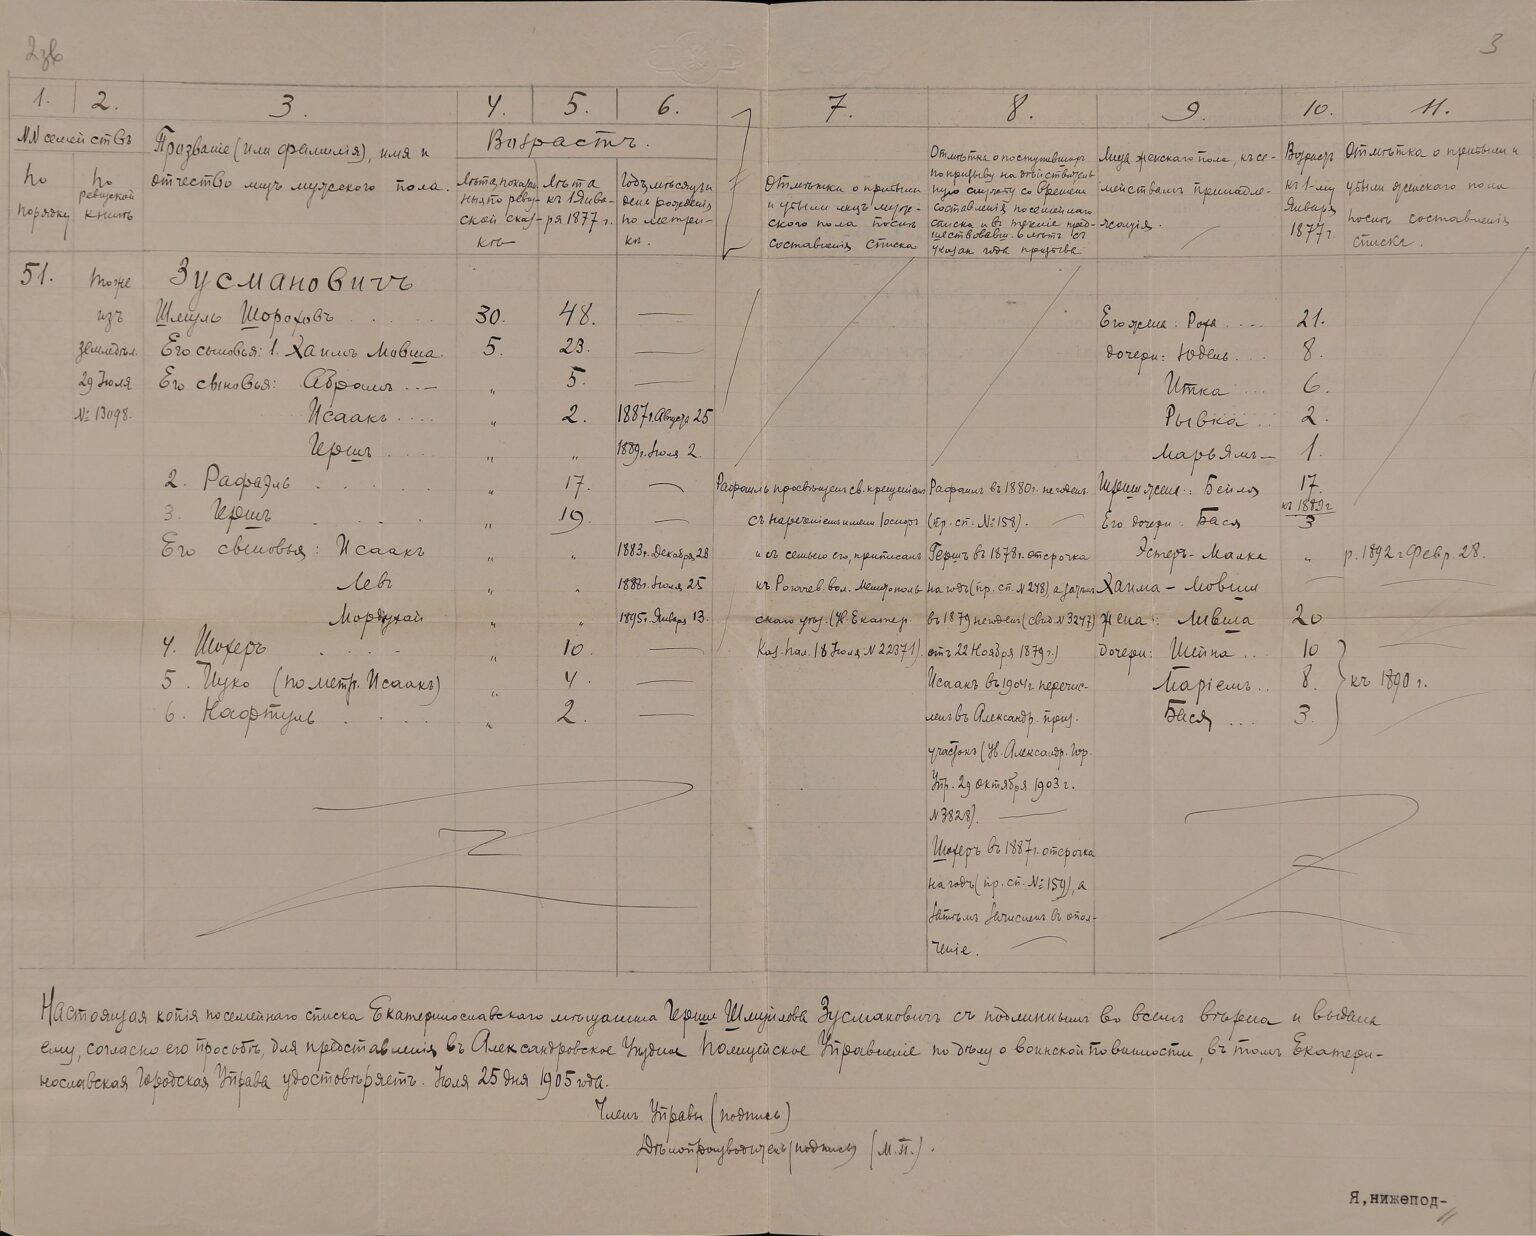 3
1. 2. 3. 4. 5. 6. 7. 8. 9. 10. 11.
NN семействъ
по порядку
по ревизской книгѣ
Прозваніе (или фамилія), имя и
отчество лицъ мужского пола.
Возрастъ.
Лѣта, показан-
ныя по ревиз-
ской сказ-
кѣ
Лѣта
къ 1 Янва-
ря 1877 г.
Годъ, мѣсяцъ и
день рожденія
по метри-
кѣ.
Отмѣтки о прибыли
и убыли лицъ муж-
ского пола послѣ
составленія списка
Отмѣтка о поступившихъ
по призыву на дѣйствитель
ную службу со времени
составленія посемейнаго
списка и въ теченіе пред-
шествовавш. 6 лѣтъ съ
указан. года призыва
Лица женскаго пола, къ се-
мействамъ принадле-
жащія.
Возрастъ
къ 1-му
Января
1877 г.
Отмѣтка о прибыли и
убыли женскаго пола
послѣ составленія
списка.
51. тоже Зусмановичъ
изъ Шмуль Шороховъ 30. 48. Его жена: Роха 21.
земледѣл. Его сыновья: 1. Хаимъ Мовша. 5. 23. дочери: Юдель 8.
29 Іюля Его сыновья: Абрамъ „ 5. Итка 6.
№ 13098. Исаакъ „ 2. 1887 г. Августа 25 Рывка 2.
Гершъ „ „ 1889 г. Іюля 2. Марьямъ 1.
2. Рафаэль „ 17. Рафаилъ просвѣщенъ св. крещеніемъ Рафаилъ въ 1880 г. негоденъ Гершa жена: Бейля 17.
къ 1889 г
3. Гершъ „ 19. съ нареченіемъ имени Іосифъ (пр. сп. № 158). Его дочери: Бася 3
Его сыновья: Исаакъ „ „ 1883 г. Декабря 28 и съ семьею его, приписанъ Гершъ въ 1878 г. отсрочка Эстеръ-Малка „ р. 1892 г Февр. 28.
Левъ „ „ 1888 г. Іюля 25 къ Рогачев. вол. Мелитополь на годъ (пр. сп. N 248), а затѣмъ Хаима-Мовши
Мордухай „ „ 1895 г. Января 13. скаго уѣз. (Ук. Екатер. въ 1879 негоденъ (свид. N 3247) жена: Ливша 20
4. Шохеръ „ 10. Каз. Пал. 18 Іюля N 22371). отъ 22 Ноября 1879 г.) Дочери: Шейна 10
5. Ицко (по метр. Исаакъ) „ 4. Исаакъ въ 1904 г. перечис- Маріемъ 8. къ 1890 г.
6. Нафтуль „ 2. ленъ въ Александр. приз. Бася 3.
участокъ (Ув. Александр. Гор.
Упр. 29 октября 1903 г.
N 3828).
Шохеръ въ 1887 г. отсрочка
на годъ (пр. сп. № 159), а
затѣмъ зачисленъ въ опол-
ченіе.
Настоящая копія посемейнаго списка Екатеринославскаго мѣщанина Герша Шмуйлова Зусмановичъ съ подлиннымъ во всемъ вѣрна и выдана
ему, согласно его просьбѣ, для представленія въ Александровское Уѣздное Полицейское Управленіе по дѣлу о воинской повинности, въ томъ Екатери-
нославская Городская Управа удостовѣряетъ. Іюля 25 дня 1905 года.
Членъ Управы (подпись)
Дѣлопроизводитель (подпись) (М.П.).
Я, нижепод-